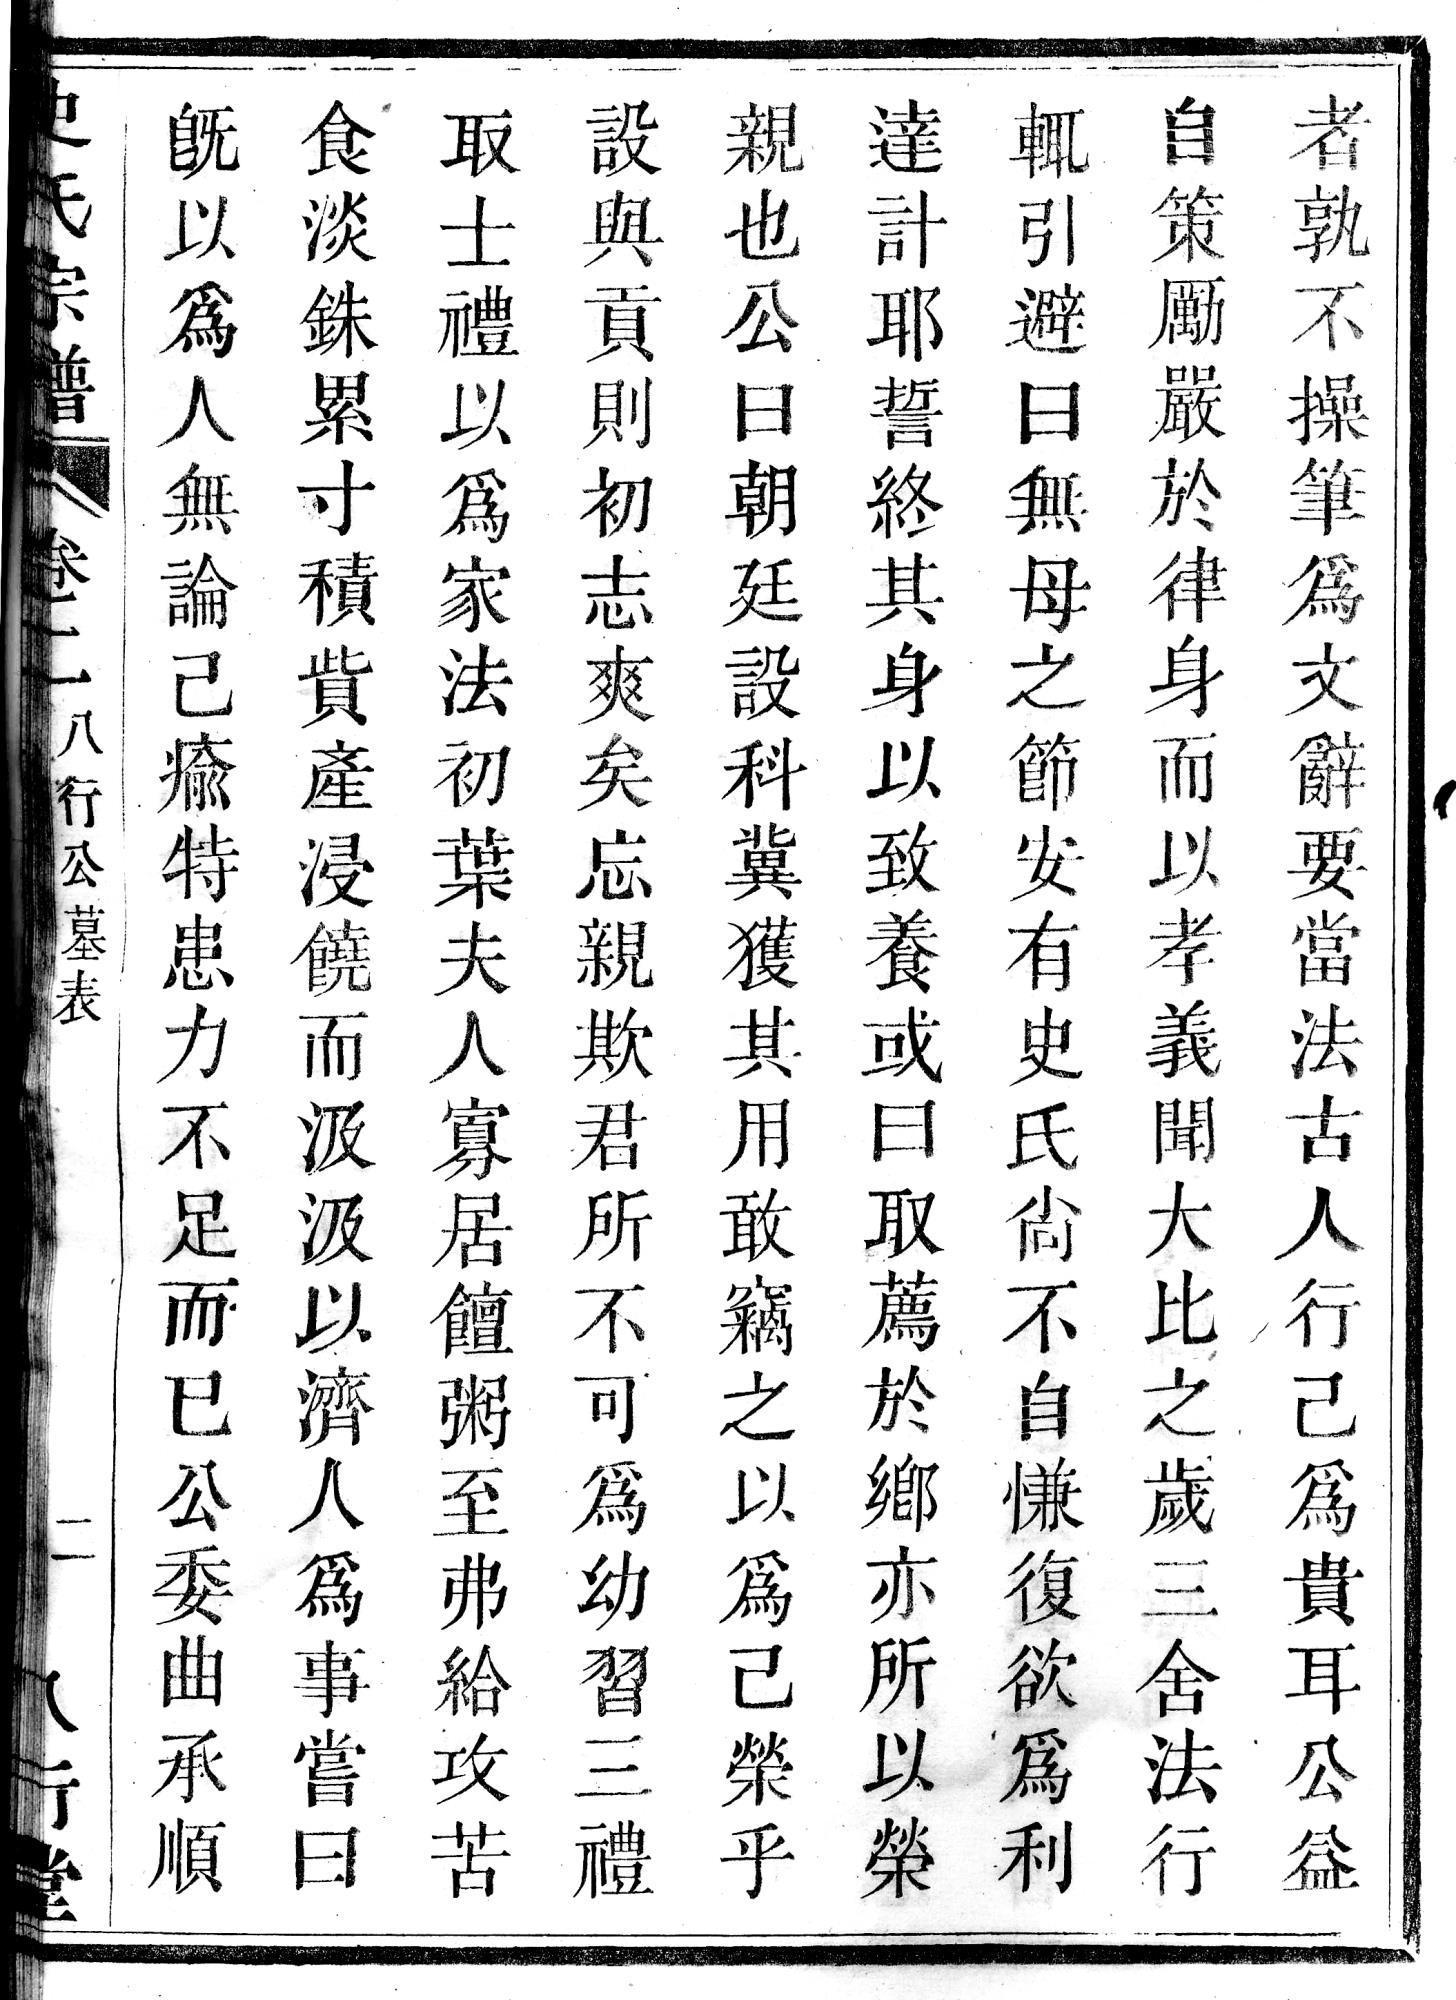 者孰不操筆爲文辭要當法古人行己爲貴耳公益
自策勵嚴於律身而以孝義聞大比之歲三舍法行
輒引避曰無母之節安有史氏尙不自慊復欲爲利
達計耶誓終其身以致養或曰取薦於鄉亦所以榮
親也公曰朝廷設科冀獲其用敢竊之以爲己榮乎
設與貢則初志爽矣忘親欺君所不可爲幼習三禮
取士禮以爲家法初葉夫人寡居饘粥至弗給攻苦
食淡銖累寸積貲產浸饒而汲汲以濟人爲事嘗曰
旣以爲人無論己瘉特患力不足而已公委曲承順
史氏宗譜 卷二 八行公墓表 二 八行堂